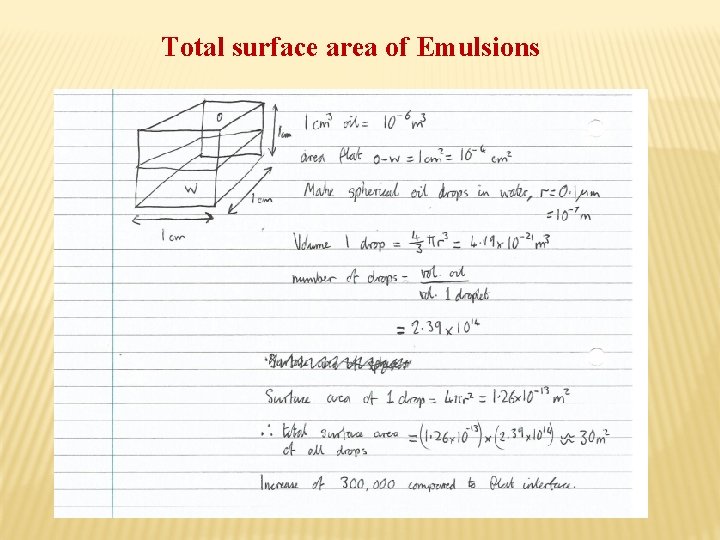 Total surface area of Emulsions
O
1 cm
W
1 cm
1 cm
1 cm³ oil = 10⁻⁶ m³
area flat o-w = 1 cm² = 10⁻⁴ cm²
Make spherical oil drops in water, r = 0.1 μm
= 10⁻⁷ m
Volume 1 drop = 4/3 πr³ = 4.19 x 10⁻²¹ m³
number of drops = vol. oil / vol. 1 droplet
= 2.39 x 10¹⁴
Surface area of 1 drop = 4πr² = 1.26x10⁻¹³ m²
∴ total surface area = (1.26x10⁻¹³) x (2.39x10¹⁴) ≈ 30 m²
of all drops
Increase of 300,000 compared to flat interface.